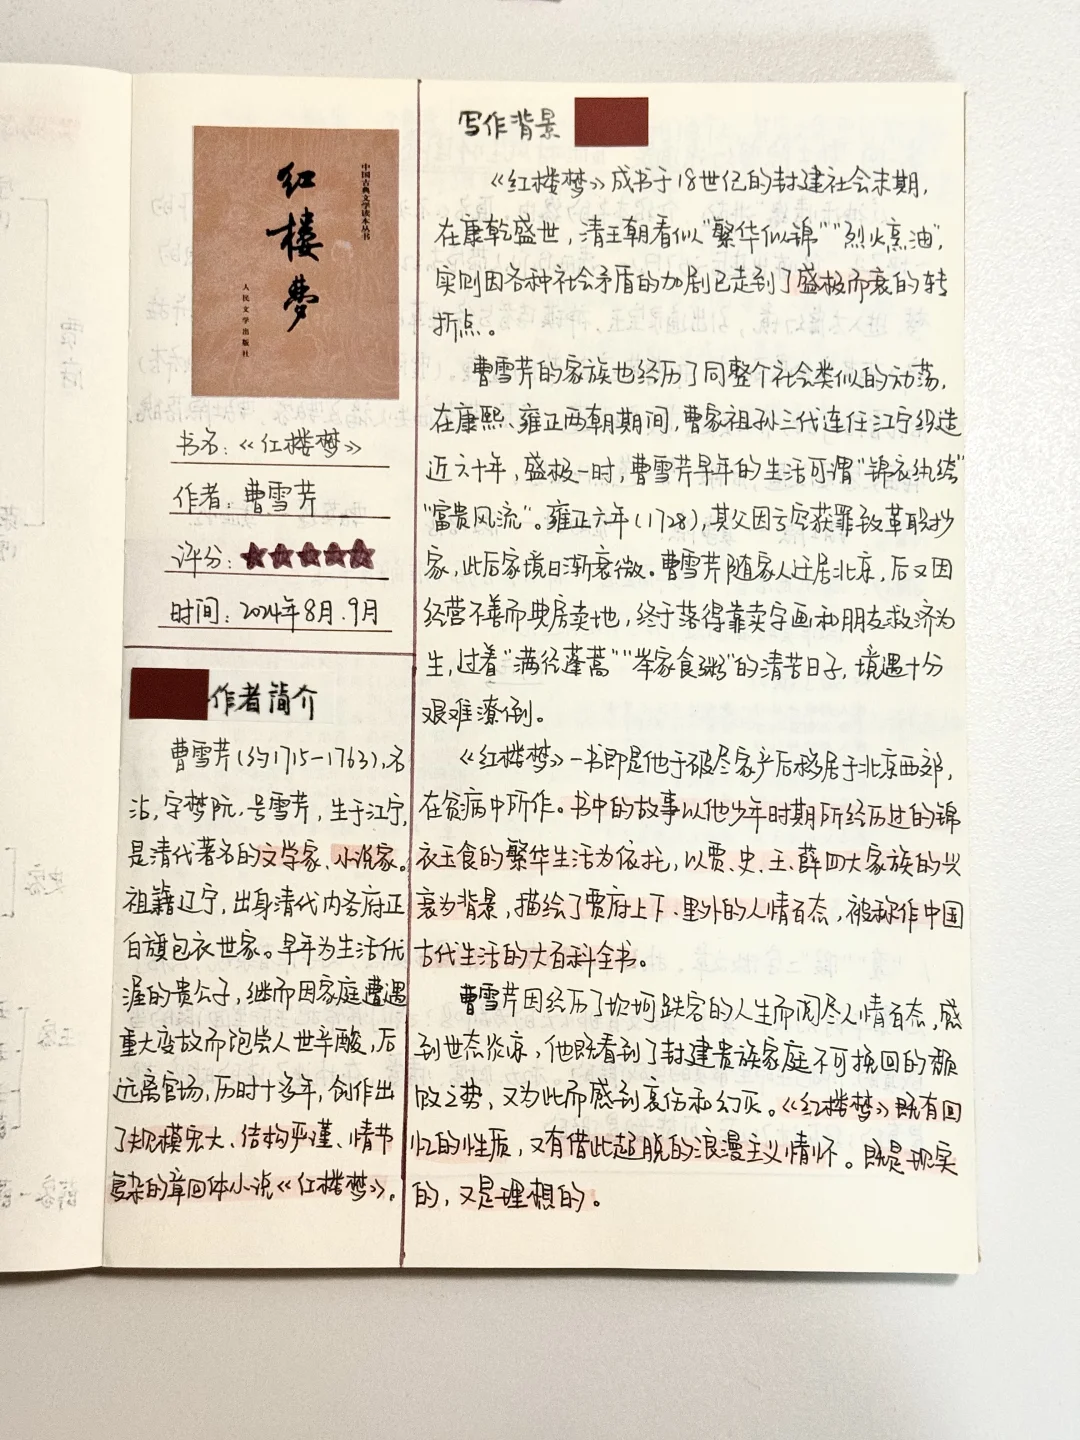 中国古典文学读本丛书
红楼梦
人民文学出版社
书名:《红楼梦》
作者:曹雪芹
评分:★★★★★
时间:2024年8月.9月
作者简介
曹雪芹(约1715-1763),名
沾,字梦阮,号雪芹,生于江宁,
是清代著名的文学家、小说家。
祖籍辽宁,出身清代内务府正
白旗包衣世家。早年为生活优
渥的贵公子,继而因家庭遭遇
重大变故而饱尝人世辛酸,后
远离官场,历时十多年,创作出
了规模宏大、结构严谨、情节
复杂的章回体小说《红楼梦》。
写作背景
《红楼梦》成书于18世纪的封建社会末期,
在康乾盛世,清王朝看似“繁华似锦”“烈火烹油”,
实则因各种社会矛盾的加剧已走到了盛极而衰的转
折点。
曹雪芹的家族也经历了同整个社会类似的动荡,
在康熙、雍正两朝期间,曹家祖孙三代连任江宁织造
近六十年,盛极一时,曹雪芹早年的生活可谓“锦衣纨绔”
“富贵风流”。雍正六年(1728),其父因亏空获罪致革职抄
家,此后家境日渐衰微。曹雪芹随家人迁居北京,后又因
经营不善而典房卖地,终于落得靠卖字画和朋友救济为
生,过着“满径蓬蒿”“举家食粥”的清苦日子,境遇十分
艰难潦倒。
《红楼梦》一书即是他于破尽家产后移居于北京西郊,
在贫病中所作。书中的故事以他少年时期所经历过的锦
衣玉食的繁华生活为依托,以贾、史、王、薛四大家族的兴
衰为背景,描绘了贾府上下、里外的人情百态,被称作中国
古代生活的大百科全书。
曹雪芹因经历了坎坷跌宕的人生而阅尽人情百态,感
到世态炎凉,他既看到了封建贵族家庭不可挽回的颓
败之势,又为此而感到哀伤和幻灭。《红楼梦》既有回
忆的性质,又有借此超脱的浪漫主义情怀。既是现实
的,又是理想的。